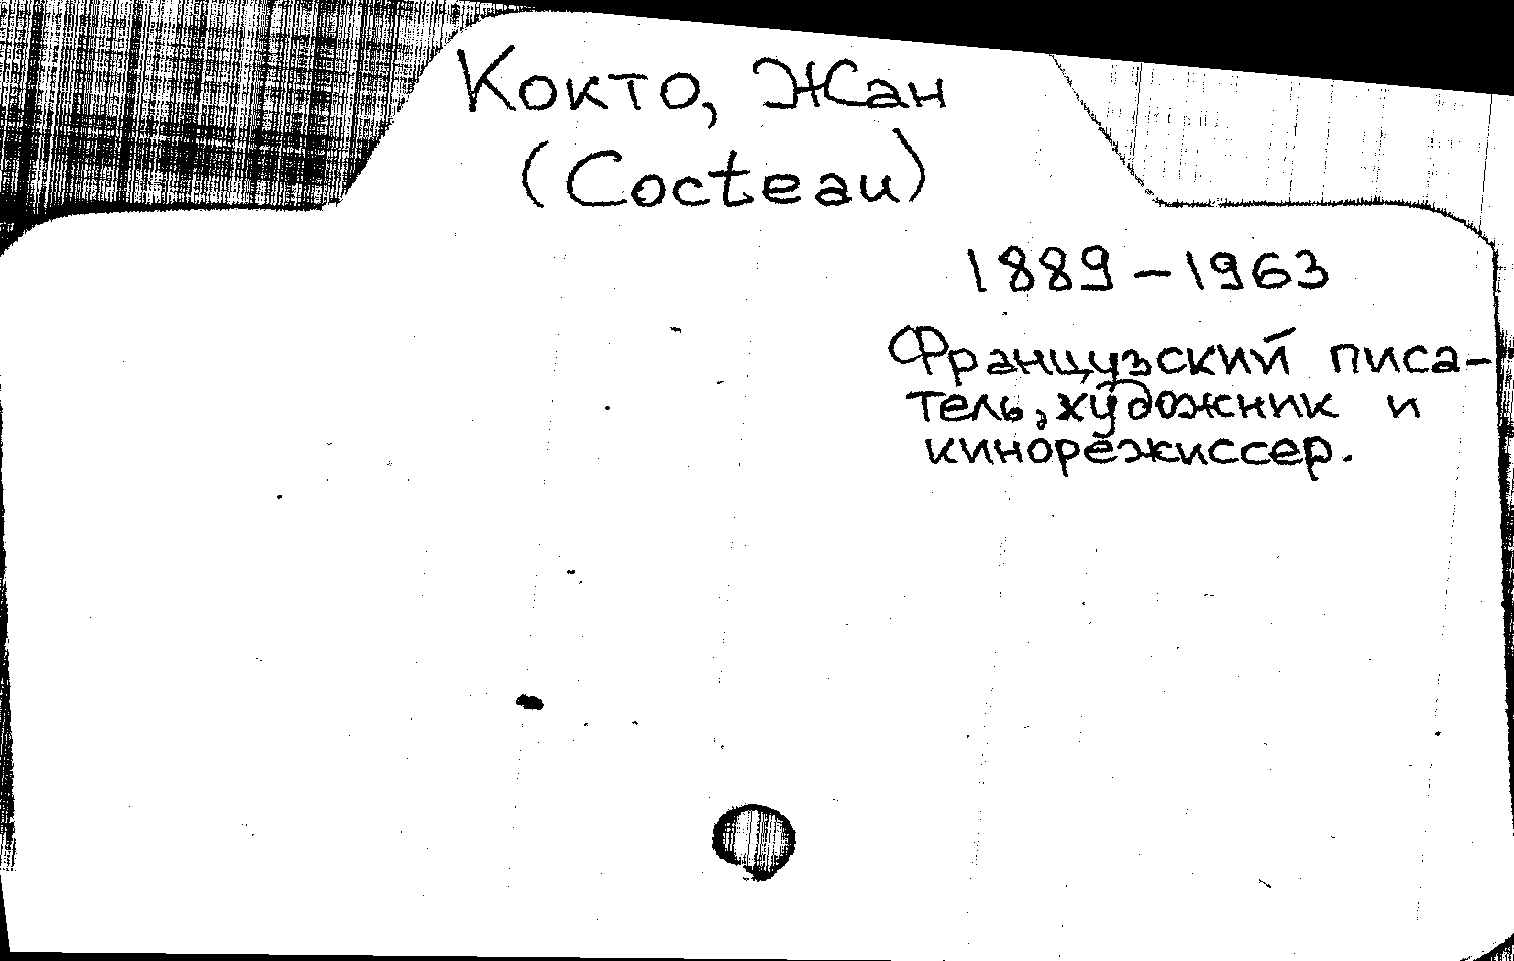 Кокто, Жан
(Cocteau)
1889-1963
Французский писа-
тель, художник и
кинорежиссер.